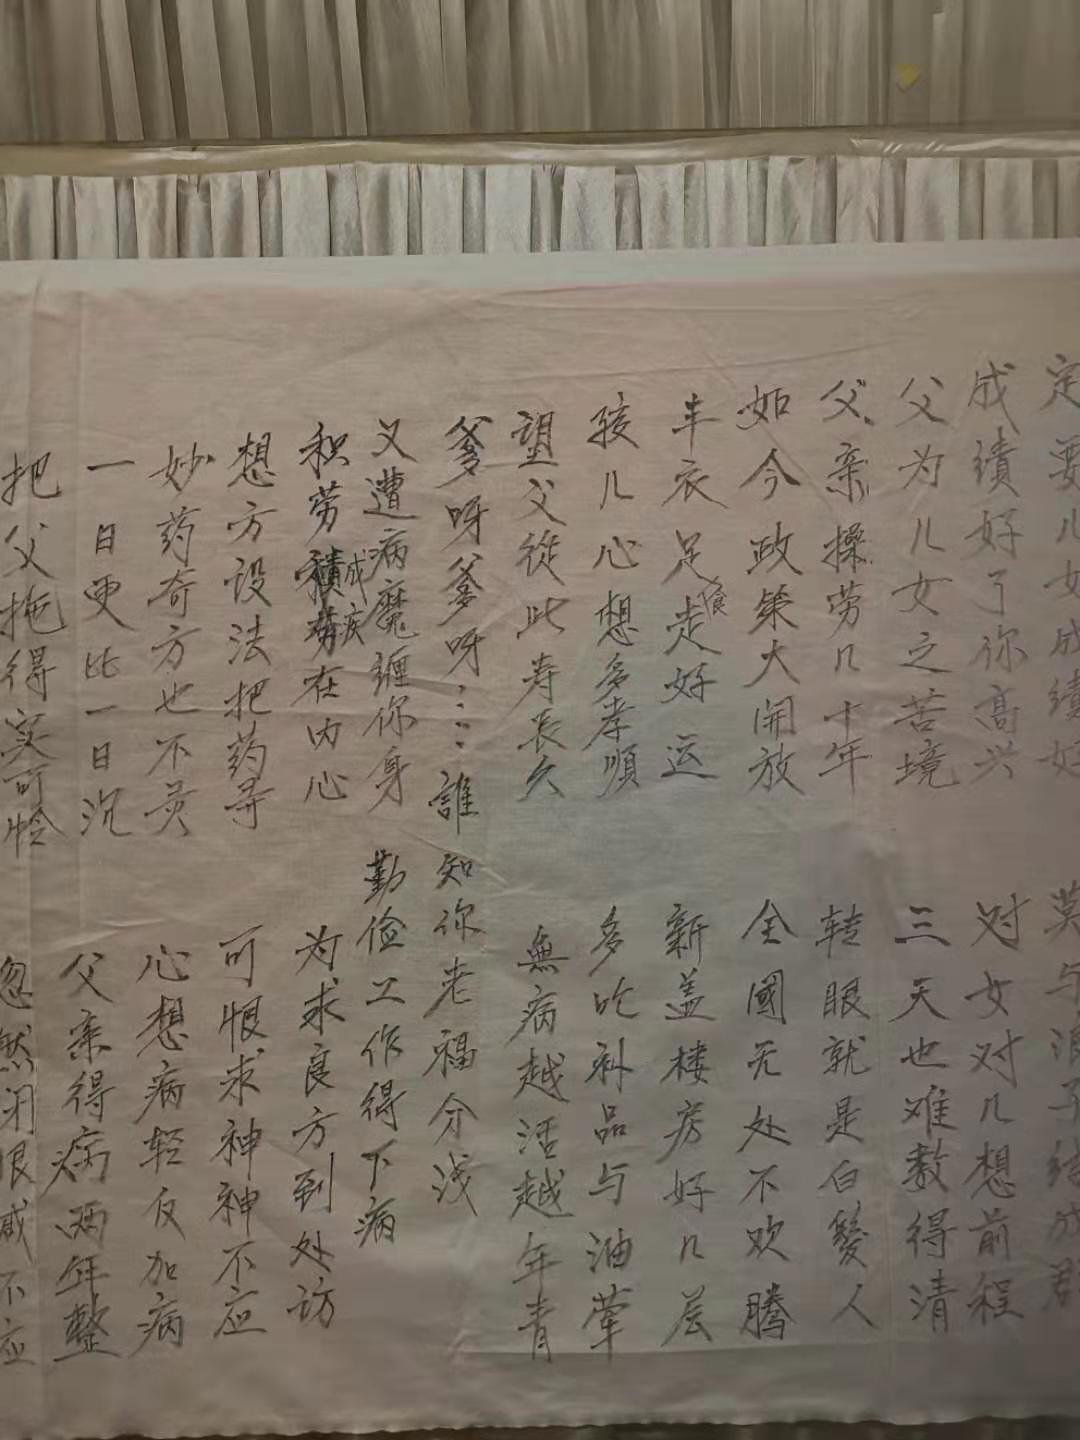 定要儿女成绩好 莫与浪子结成群
成績好了你高兴 对女对儿想前程
父为儿女之苦境 三天也难数得清
父亲操劳几十年 转眼就是白髮人
如今政策大開放 全國无处不欢腾
丰衣足食走好运 新盖楼房好几层
孩儿心想多孝順 多吃补品与油荤
望父從此寿长久 無病越活越年青
爹呀爹呀……誰知你老福分浅
又遭病魔缠你身 勤俭工作得下病
积劳成疾在内心 为求良方到处访
想方设法把药寻 可恨求神神不应
妙药奇方也不灵 心想病轻反加病
一日更比一日沉 父亲得病两年整
把父拖得实可怜 忽然闭眼喊不应